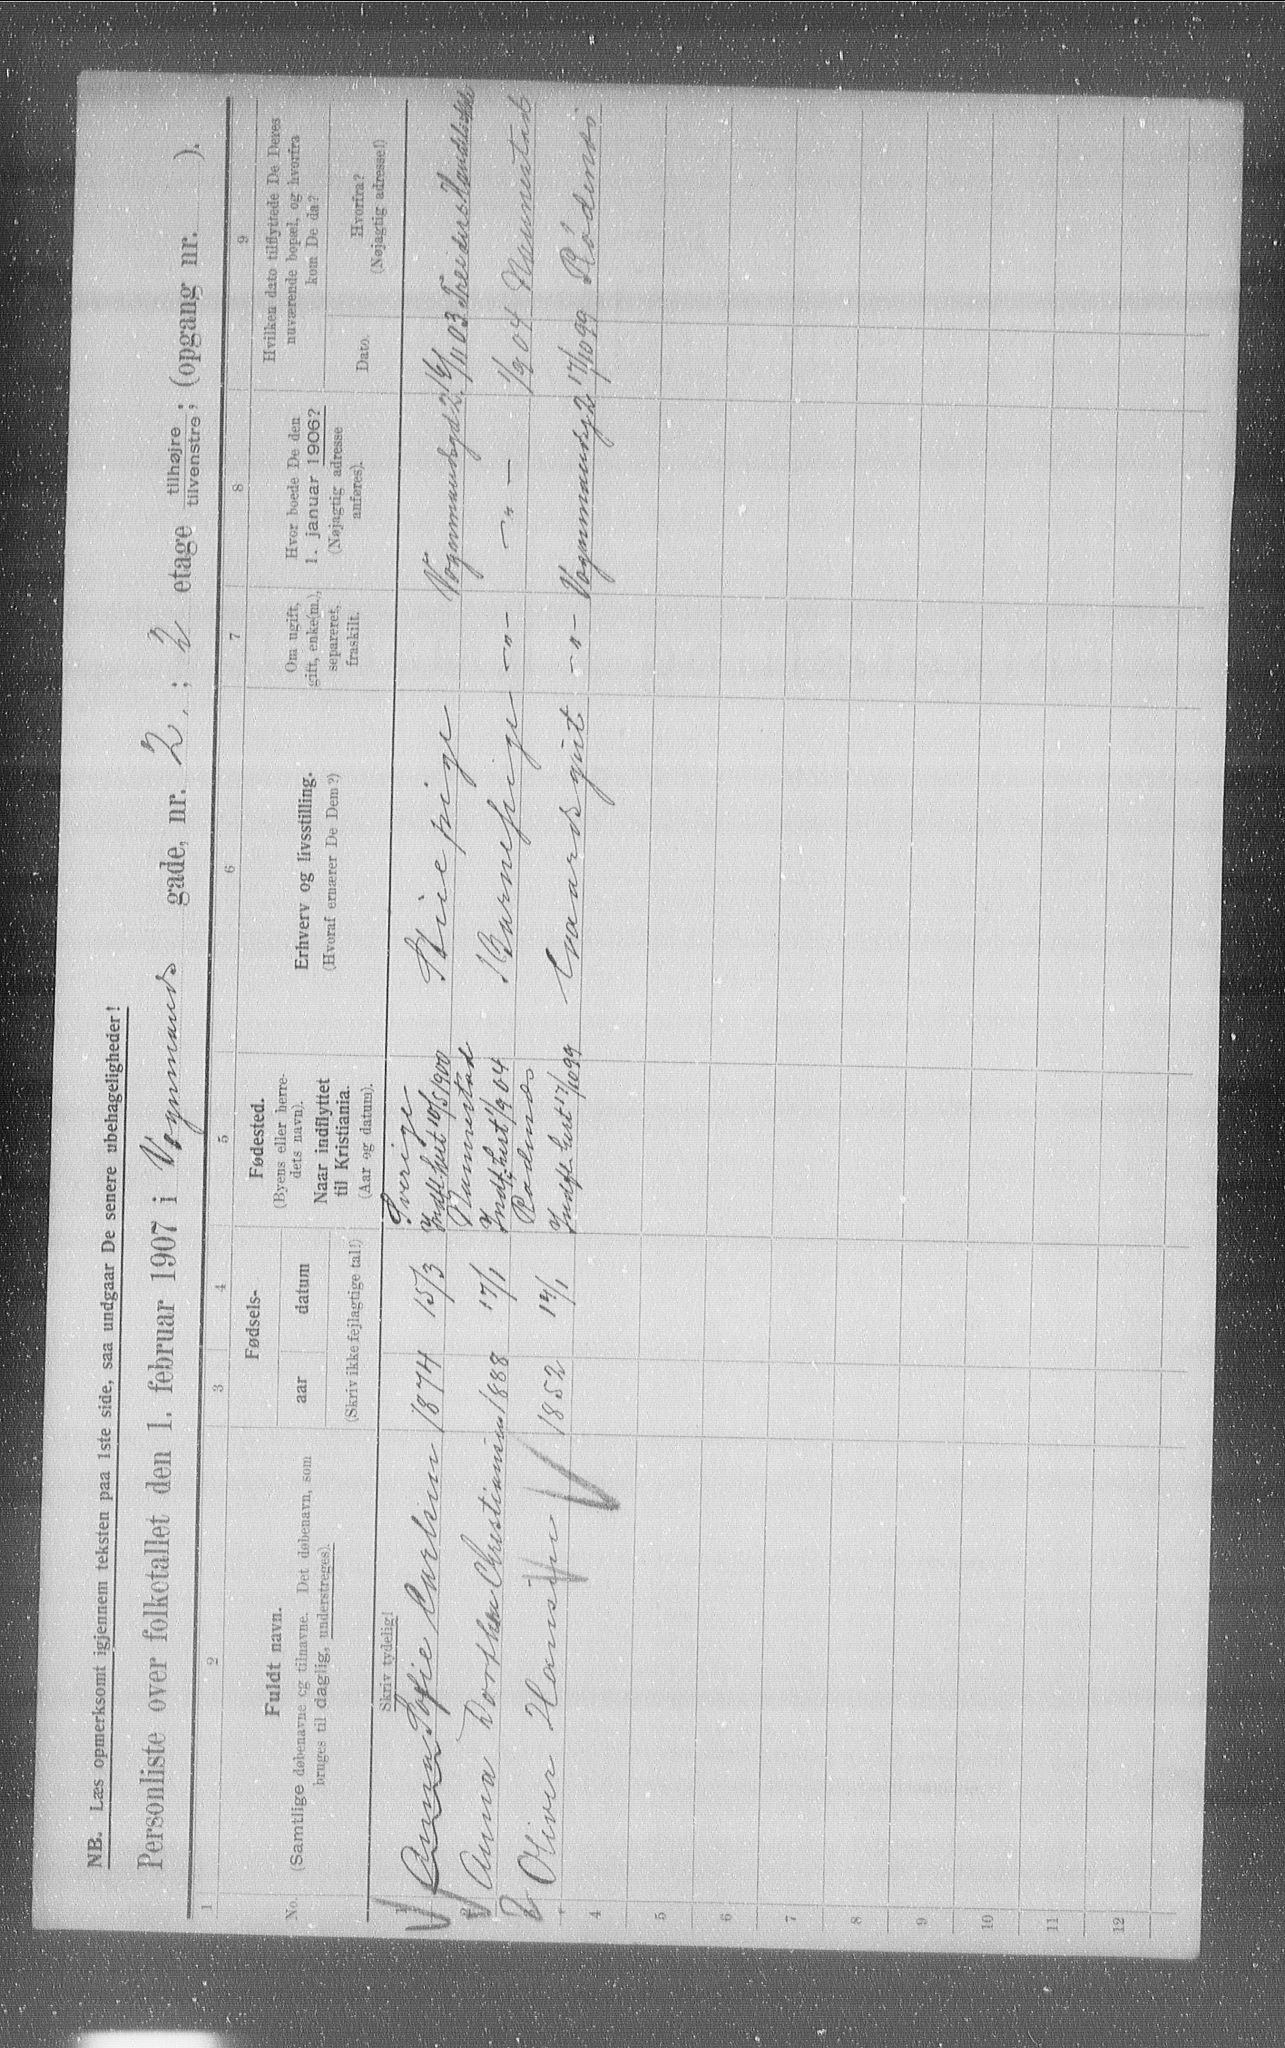 NB. Læs opmerksomt igjennem teksten paa 1ste side, saa undgaar De senere ubehageligheder!
Personliste over folketallet den 1. februar 1907 i Vognmands gade, nr. 2. ; 2 etage tilhøjre tilvenstre ; (opgang nr. ).
1 2 3 4 5 6 7 8 9
No.
Fuldt navn.
(Samtlige døbenavne og tilnavne. Det døbenavn, som
bruges til daglig, understreges).
Skriv tydelig!
Fødsels-
aar datum
(Skriv ikke fejlagtige tal!)
Fødested.
(Byens eller herre-
dets navn).
Naar indflyttet
til Kristiania.
(Aar og datum).
Erhverv og livsstilling.
(Hvoraf ernærer De Dem?)
Om ugift,
gift, enke(m.),
separeret,
fraskilt.
Hvor boede De den
1. januar 1906?
(Nøjagtig adresse
anføres).
Hvilken dato tilflyttede De Deres
nuværende bopæl, og hvorfra
kom De da?
Dato.
Hvorfra?
(Nøjagtig adresse!)
Sverige
1 Anna Sofie Carlsen 1874 15/3 Indfl. hert 10/5 1900 Vognmandsgd 2 16/11 03
Nannestad
2 Anna Dorthea Christiansen 1888 17/1 Indfl. hert 1/9 04 Barnepige -"- -"- 1/9 04 Nannestad
Rødenes
3 Oliver Hansen 1852 Indfl. hert 17/10 99 Gaardsgut -"- Vognmandsg 2 17/10 99 Rødenes
4
5
6
7
8
9
10
11
12